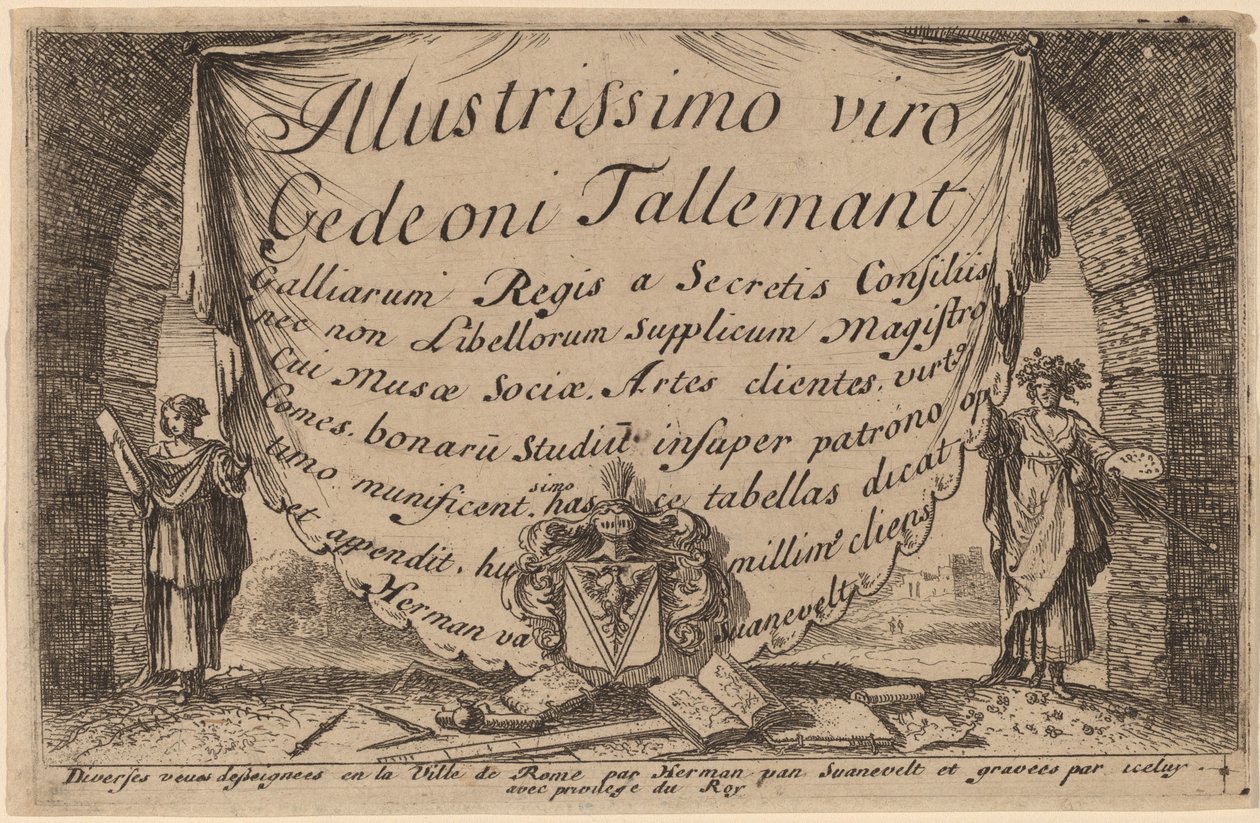 Illustrissimo viro
Gedeoni Tallemant
Galliarum Regis a Secretis Consiliis
nec non Libellorum supplicum Magistro
Cui Musæ Sociæ, Artes clientes, virt9
Comes, bonarū Studiū insuper patrono op
timo munificent.simo has ce tabellas dicat
et appendit, hu millim9 cliens
Herman va suanevelt
Diverses veues desseignees en la Ville de Rome par Herman van Suanevelt et gravees par iceluy
avec privilege du Roy